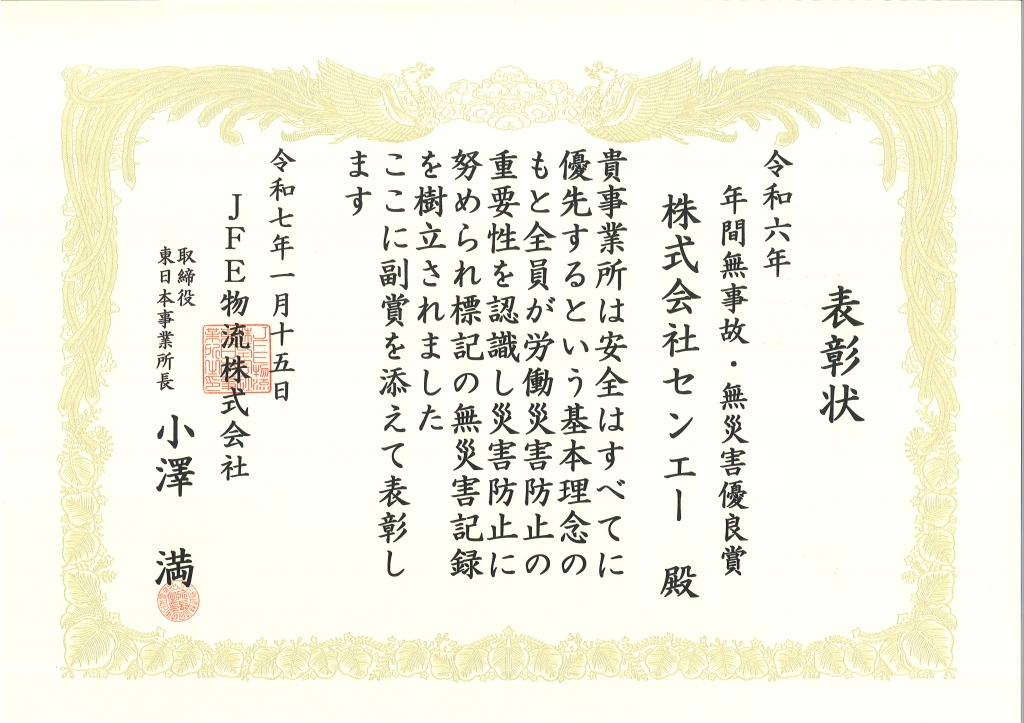 表彰状
令和六年
年間無事故・無災害優良賞
株式会社センエー 殿
貴事業所は安全はすべてに
優先するという基本理念の
もと全員が労働災害防止の
重要性を認識し災害防止に
努められ標記の無災害記録
を樹立されました
ここに副賞を添えて表彰し
ます
令和七年一月十五日
JFE物流株式会社
取締役
東日本事業所長
小澤 満